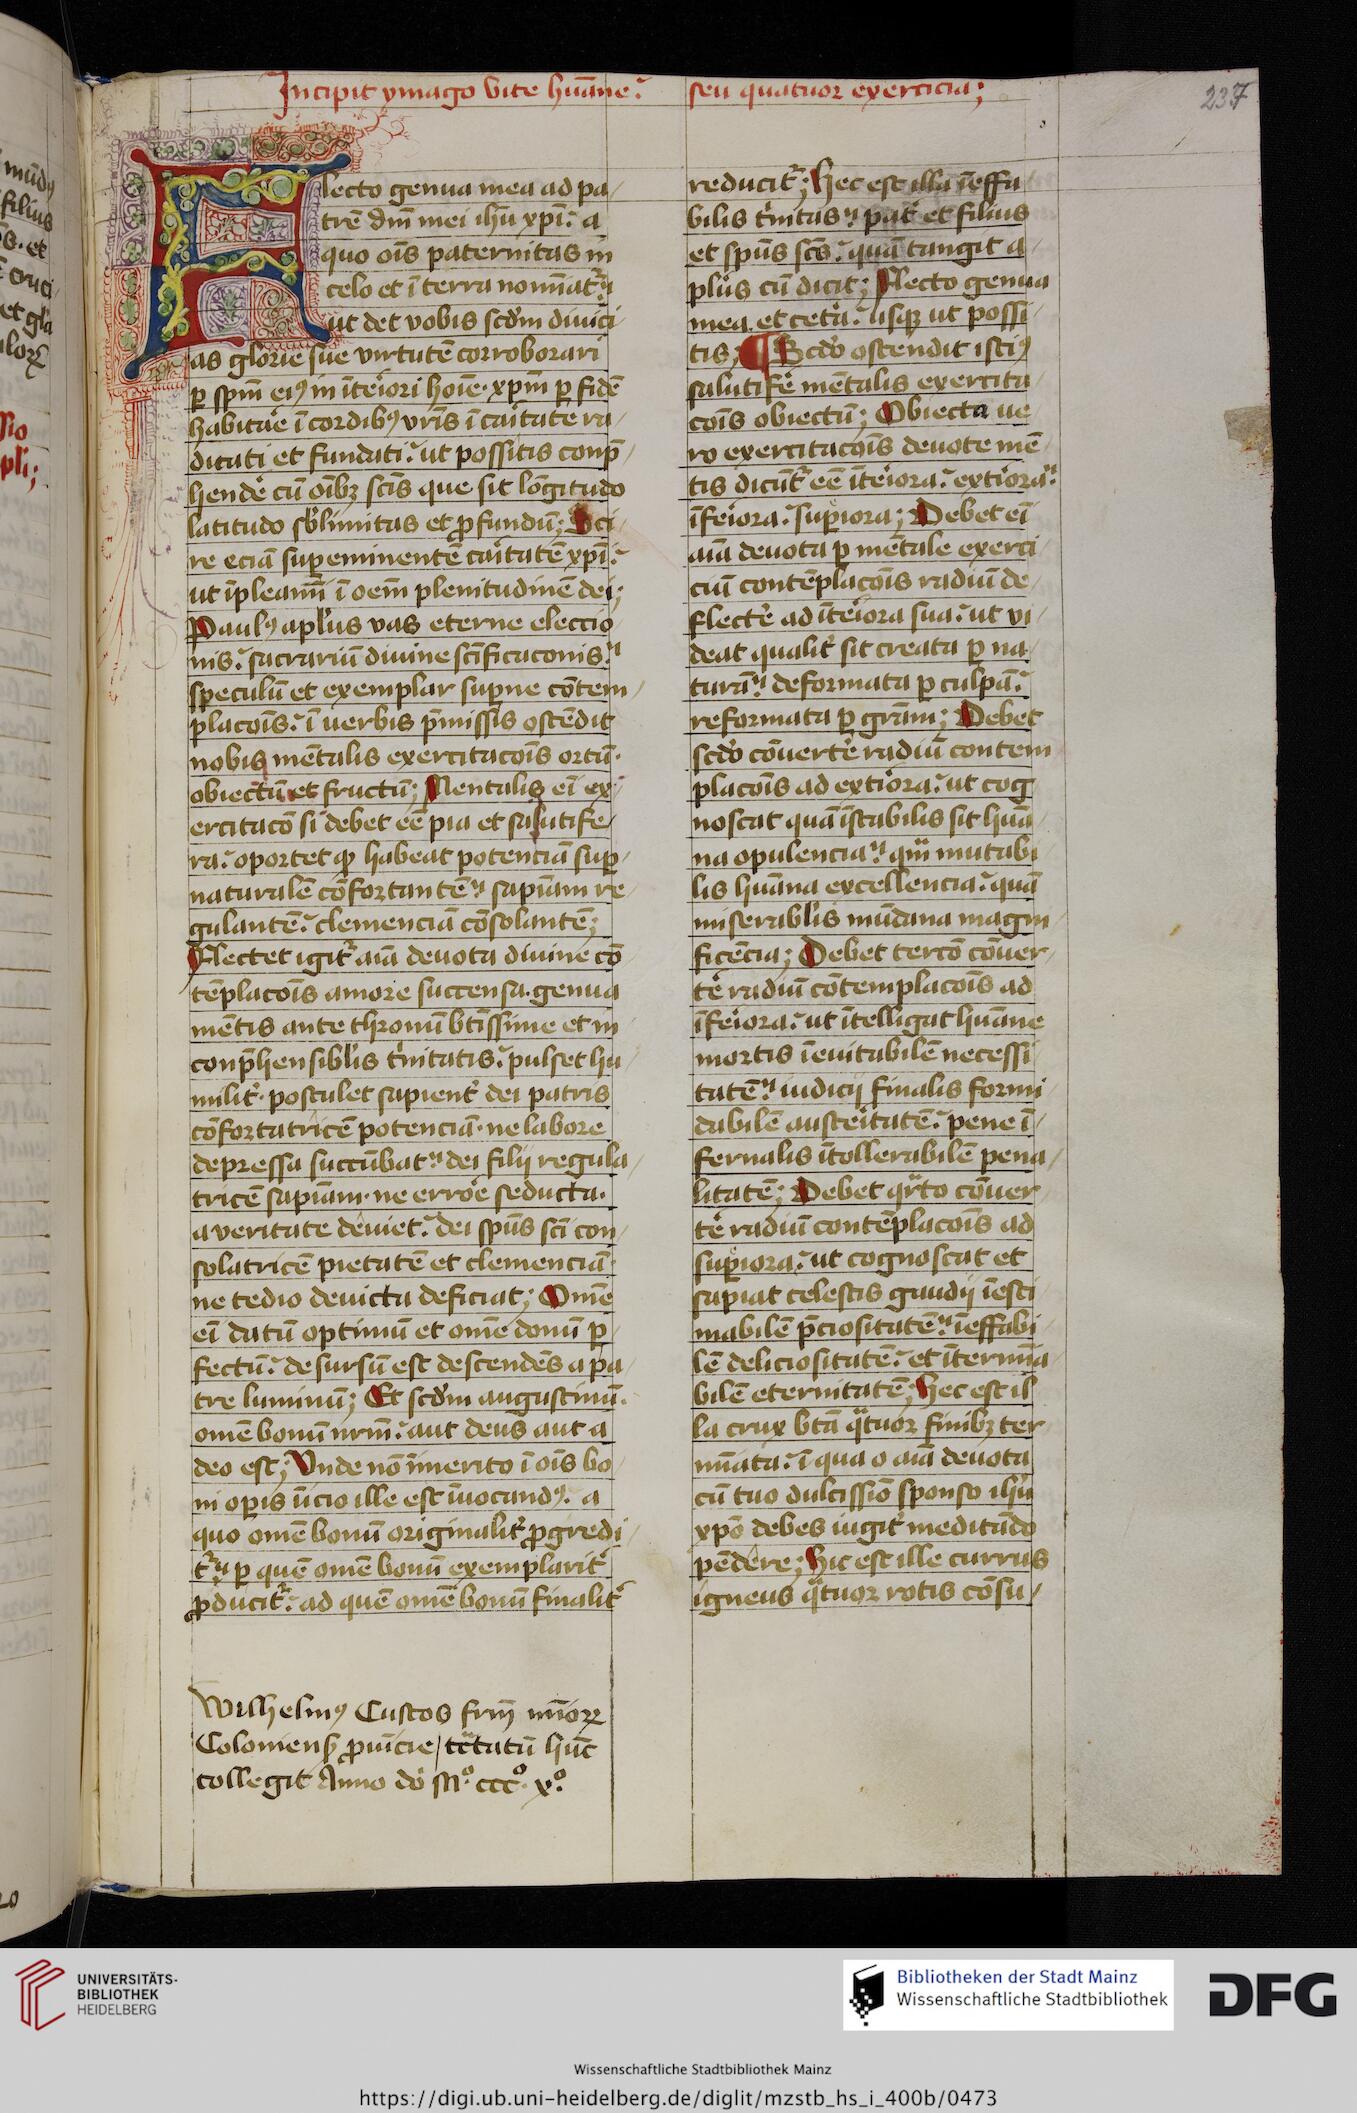 Incipit ymago vite hūane. seu quatuor exercicia;
237
Flecto genua mea ad pa/
trē dm̄ mei ihū xp̄i: a
quo oīs paternitas in
celo et ī terra nomīat᷑:
ut det vobis scd̄m diuici
as glorie sue virtutē corroborari
ꝑ spm̄ eiꝯ in īteiori hoīe. xpm̄ ꝑ fidē
habitaē ī cordibꝯ vr̄is ī caitate ra/
dicati et fundati: ut possitis conp̄/
hendē cū oībꝫ scīs que sit lōgitudo
latitudo sblimitas et ꝓfundū; Sci/
re eciā suꝑeminentē caitatē xp̄i:
ut īpleamī ī oēm plenitudinē dei;
Paulꝯ apl̄us vas eterne eleccio/
nis: sacrariū diuine scīficacionis:
speculū et exemplar suꝑne cōtem/
placōis: ī uerbis p̄missis ostēdit
nobis mētalis exercitacōis ortū.
obiectū et fructū; Mentalis eī ex/
ercitacō si debet eē pia et salutife/
ra: oportet ꝙ habeat potenciā suꝑ/
naturalē cōfortantē: sapīam re/
gulantē: clemenciā cōsolantē;
Flectet igit᷑ aīa deuota diuine cō
tēplacōis amore succensa. genua
mētis ante thronū btīssime et in
conp̄hensiblis t̄nitatis: pulset hu
milit᷑. postulet sapient᷑ dei patris
cōfortatricē potenciā. ne labore
depressa succūbat: dei filij regula/
tricē sapīam. ne erroē seducta.
a veritate deuiet: dei spūs scī con/
solatricē pietatē et clemenciā.
ne tedio deuicta deficiat; Omē
eī datū optimū et omē donū ꝑ/
fectū: desursū est descendēs a pa/
tre luminū; Et scd̄m augustinū.
omē bonū nrm̄: aut deus aut a
deo est; Unde nō īmerito ī oīs bo/
ni oꝑis īicio ille est īuocandꝯ. a
quo omē bonū originalit᷑ ꝓgredi/
t᷑: ꝑ quē omē bonū exemplarit᷑
ꝓducit᷑: ad quē omē bonū finalit᷑
reducit᷑; Hec est illa īeffa
bilis t̄nitas: pat᷑ et filius
et spūs scs̄: quā tangit a/
pl̄us cū dicit; Flecto genua
mea. et cetā: usqꝫ ut possi/
tis; ¶ Scdo ostendit istiꝯ
salutifē mētalis exercita/
cōis obiectū; Obiecta ue/
ro exercitacōis deuote mē/
tis dicūt᷑ eē īteiora: extiora:
īfeiora: suꝑiora; Debet eī
aīa deuota ꝑ mētale exerci/
ciū contēplacōis radiū de/
flectē ad īteiora sua: ut vi/
deat qualit᷑ sit creata ꝑ na/
turā: deformata ꝑ culpā:
reformata ꝑ grām; Debet
scdo cōuertē radiū contem
placōis ad extiora: ut cog/
noscat quā īstabilis sit hūa/
na opulencia: qm̄ mutabi/
lis hūana excellencia: quā
miserablis mūdana magni/
ficēcia; Debet tercō cōuer/
tē radiū cōtemplacōis ad
īfeiora: ut ītelligat hūane
mortis īeuitabilē necessi/
tatē: iudicij finalis formi/
dabilē austeitatē: pene ī/
fernalis ītollerabilē pena/
litatē; Debet qrto cōuer/
tē radiū contēplacōis ad
suꝑiora: ut cognoscat et
sapiat celestis gaudij īesti
mabilē p̄ciositatē: īeffabi/
lē deliciositatē: et īterm̄a/
bilē eternitatē; Hec est il/
la crux btā qtuor finibꝫ ter/
mīata: ī qua o aīa deuota
cū tuo dulcissīo sponso ihū
xpō debes iugit᷑ meditādo
pēdere; Hic est ille currus
igneus qtuor rotis cōsu/
Wilhelmꝯ Custos frm̄ mīoꝝ
Coloniens̄ ꝓuīcie / tctatū hūc
collegit Anno do Mº cccº. xº.
UNIVERSITÄTS-
BIBLIOTHEK
HEIDELBERG
Bibliotheken der Stadt Mainz
Wissenschaftliche Stadtbibliothek
DFG
Wissenschaftliche Stadtbibliothek Mainz
https://digi.ub.uni-heidelberg.de/diglit/mzstb_hs_i_400b/0473